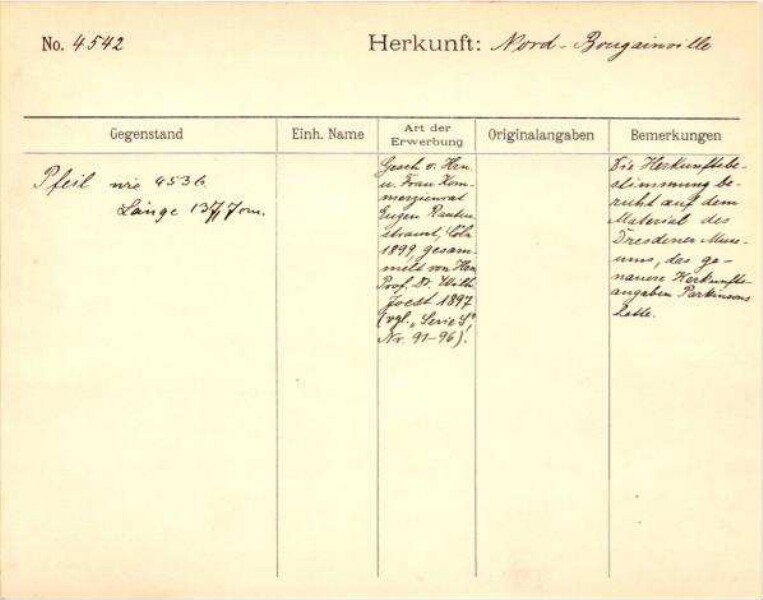 No. 4542
Herkunft: Nord-Bougainville
Gegenstand
Einh. Name
Art der
Erwerbung
Originalangaben
Bemerkungen
Pfeil wie 4536
Länge 137,7 cm.
Gesch v. Hrn
u. Frau Kom-
merzienrat
Eugen Rauten
strauch, Cöln
1899, gesam-
melt von Hrn
Prof. Dr. Wilh
Joest 1897
(vgl. „Serie S",
Nr. 91-96).
Die Herkunftsbe-
stimmung be-
ruht auf dem
Material des
Dresdener Muse-
ums, das ge-
nauere Herkunfts-
angaben Parkinsons
hatte.